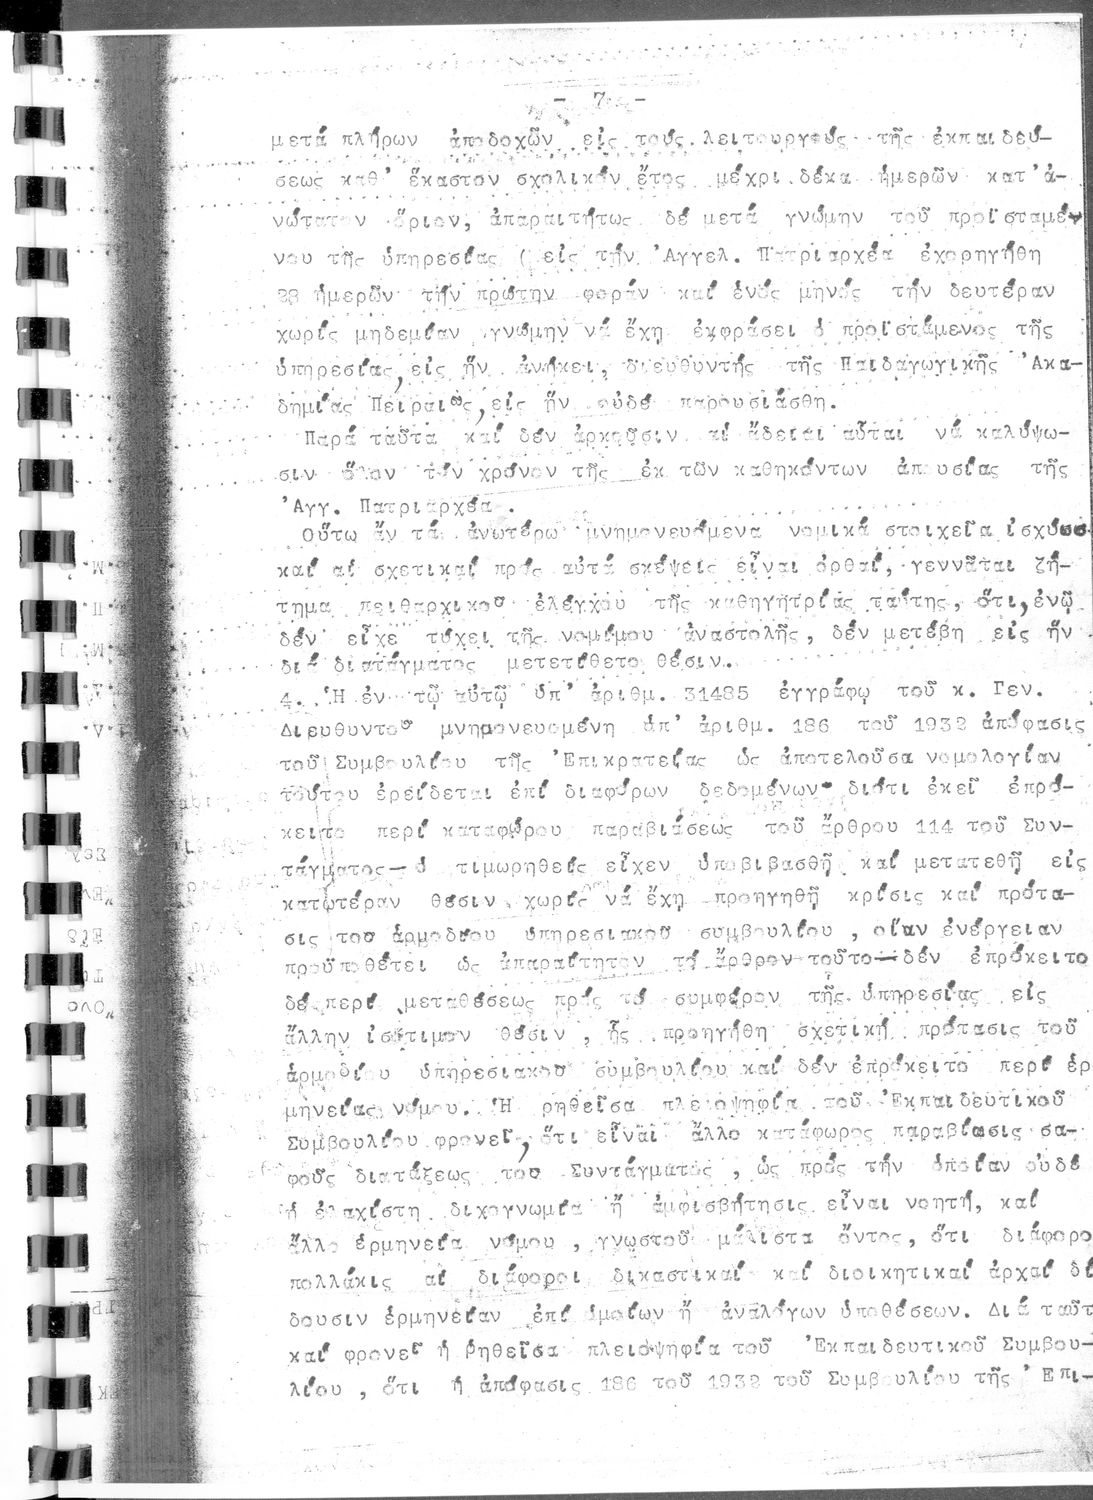 - 7 -
μετά πλήρων ἀποδοχῶν εἰς τούς λειτουργούς τῆς ἐκπαιδεύ-
σεως καθ' ἕκαστον σχολικόν ἔτος μέχρι δέκα ἡμερῶν κατ'ἀ-
νώτατον ὅριον, ἀπαραιτήτως δέ μετά γνώμην τοῦ προϊσταμέ-
νου τῆς ὑπηρεσίας ( εἰς τήν Ἀγγελ. Πατριαρχέα ἐχορηγήθη
28 ἡμερῶν τήν πρώτην φοράν καί ἑνός μηνός τήν δευτέραν
χωρίς μηδεμίαν γνώμην νά ἔχῃ ἐκφράσει ὁ προϊστάμενος τῆς
ὑπηρεσίας, εἰς ἥν ἀνήκει, διευθυντής τῆς Παιδαγωγικῆς Ἀκα-
δημίας Πειραιῶς, εἰς ἥν οὐδέ παρουσιάσθη.
Παρά ταῦτα καί δέν ἀρκοῦσιν αἱ ἄδειαι αὗται νά καλύψω-
σιν ὅλον τόν χρόνον τῆς ἐκ τῶν καθηκόντων ἀπουσίας τῆς
Ἀγγ. Πατριαρχέα .
Οὕτω ἄν τά ἀνωτέρω μνημονευόμενα νομικά στοιχεῖα ἰσχύουν
καί αἱ σχετικαί πρός αὐτά σκέψεις εἶναι ὀρθαί, γεννᾶται ζή-
τημα πειθαρχικοῦ ἐλέγχου τῆς καθηγήτρίας ταύτης, ὅτι, ἐνῷ
δέν εἶχε τύχει τῆς νομίμου ἀναστολῆς, δέν μετέβη εἰς ἥν
διά διατάγματος μετετίθετο θέσιν.
4. Ἡ ἐν τῷ αὐτῷ ὑπ' ἀριθμ. 31485 ἐγγράφῳ τοῦ κ. Γεν.
Διευθυντοῦ μνημονευομένη ὑπ' ἀριθμ. 186 τοῦ 1932 ἀπόφασις
τοῦ Συμβουλίου τῆς Ἐπικρατείας ὡς ἀποτελοῦσα νομολογίαν
τούτου ἐρείδεται ἐπί διαφόρων δεδομένων· διότι ἐκεῖ ἐπρό-
κειτο περί καταφώρου παραβιάσεως τοῦ ἄρθρου 114 τοῦ Συν-
τάγματος— ὁ τιμωρηθείς εἶχεν ὑποβιβασθῆ καί μετατεθῆ εἰς
κατωτέραν θέσιν χωρίς νά ἔχῃ προηγηθῆ κρίσις καί πρότα-
σις τοῦ ἁρμοδίου ὑπηρεσιακοῦ συμβουλίου , οἵαν ἐνέργειαν
προϋποθέτει ὡς ἀπαραίτητον τό ἄρθρον τοῦτο—δέν ἐπρόκειτο
δέ περί μεταθέσεως πρός τό συμφέρον τῆς ὑπηρεσίας εἰς
ἄλλην ἰσότιμον θέσιν , ἧς προηγήθη σχετική πρότασις τοῦ
ἁρμοδίου ὑπηρεσιακοῦ συμβουλίου καί δέν ἐπρόκειτο περί ἑρ
μηνείας νόμου. Ἡ ρηθεῖσα πλειοψηφία τοῦ Ἐκπαιδευτικοῦ
Συμβουλίου φρονεῖ, ὅτι εἶναι ἄλλο κατάφωρος παραβίασις σα-
φοῦς διατάξεως τοῦ Συντάγματος , ὡς πρός τήν ὁποίαν οὐδέ
ἡ ἐλαχίστη διχογνωμία ἤ ἀμφισβήτησις εἶναι νοητή, καί
ἄλλο ἑρμηνεία νόμου , γνωστοῦ μάλιστα ὄντος, ὅτι διάφορο
πολλάκις αἱ διάφοροι δικαστικαί καί διοικητικαί ἀρχαί δί
δουσιν ἑρμηνείαν ἐπί ὁμοίων ἤ ἀναλόγων ὑποθέσεων. Διά ταῦτ
καί φρονεῖ ἡ ῥηθεῖσα πλειοψηφία τοῦ Ἐκπαιδευτικοῦ Συμβου-
λίου , ὅτι ἡ ἀπόφασις 186 τοῦ 1932 τοῦ Συμβουλίου τῆς Ἐπι-